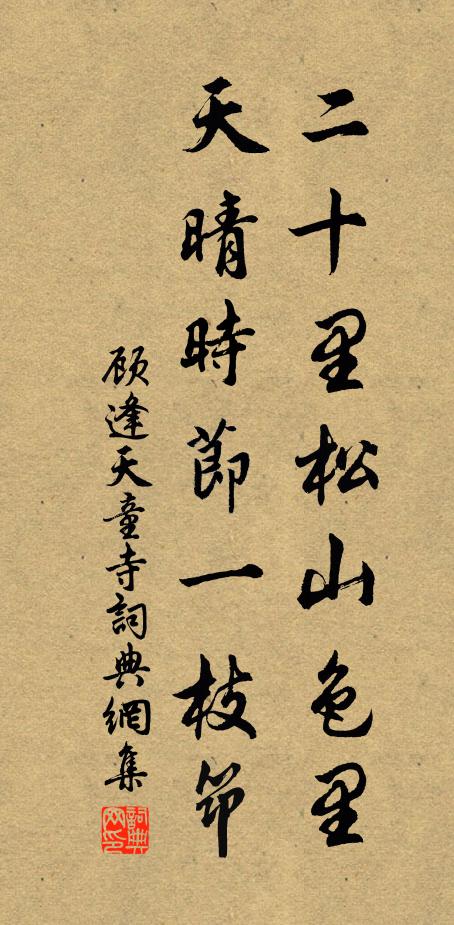 二十里松山色里
天晴時節一枝筇
顧逢天童寺詞典網集
詞典网印